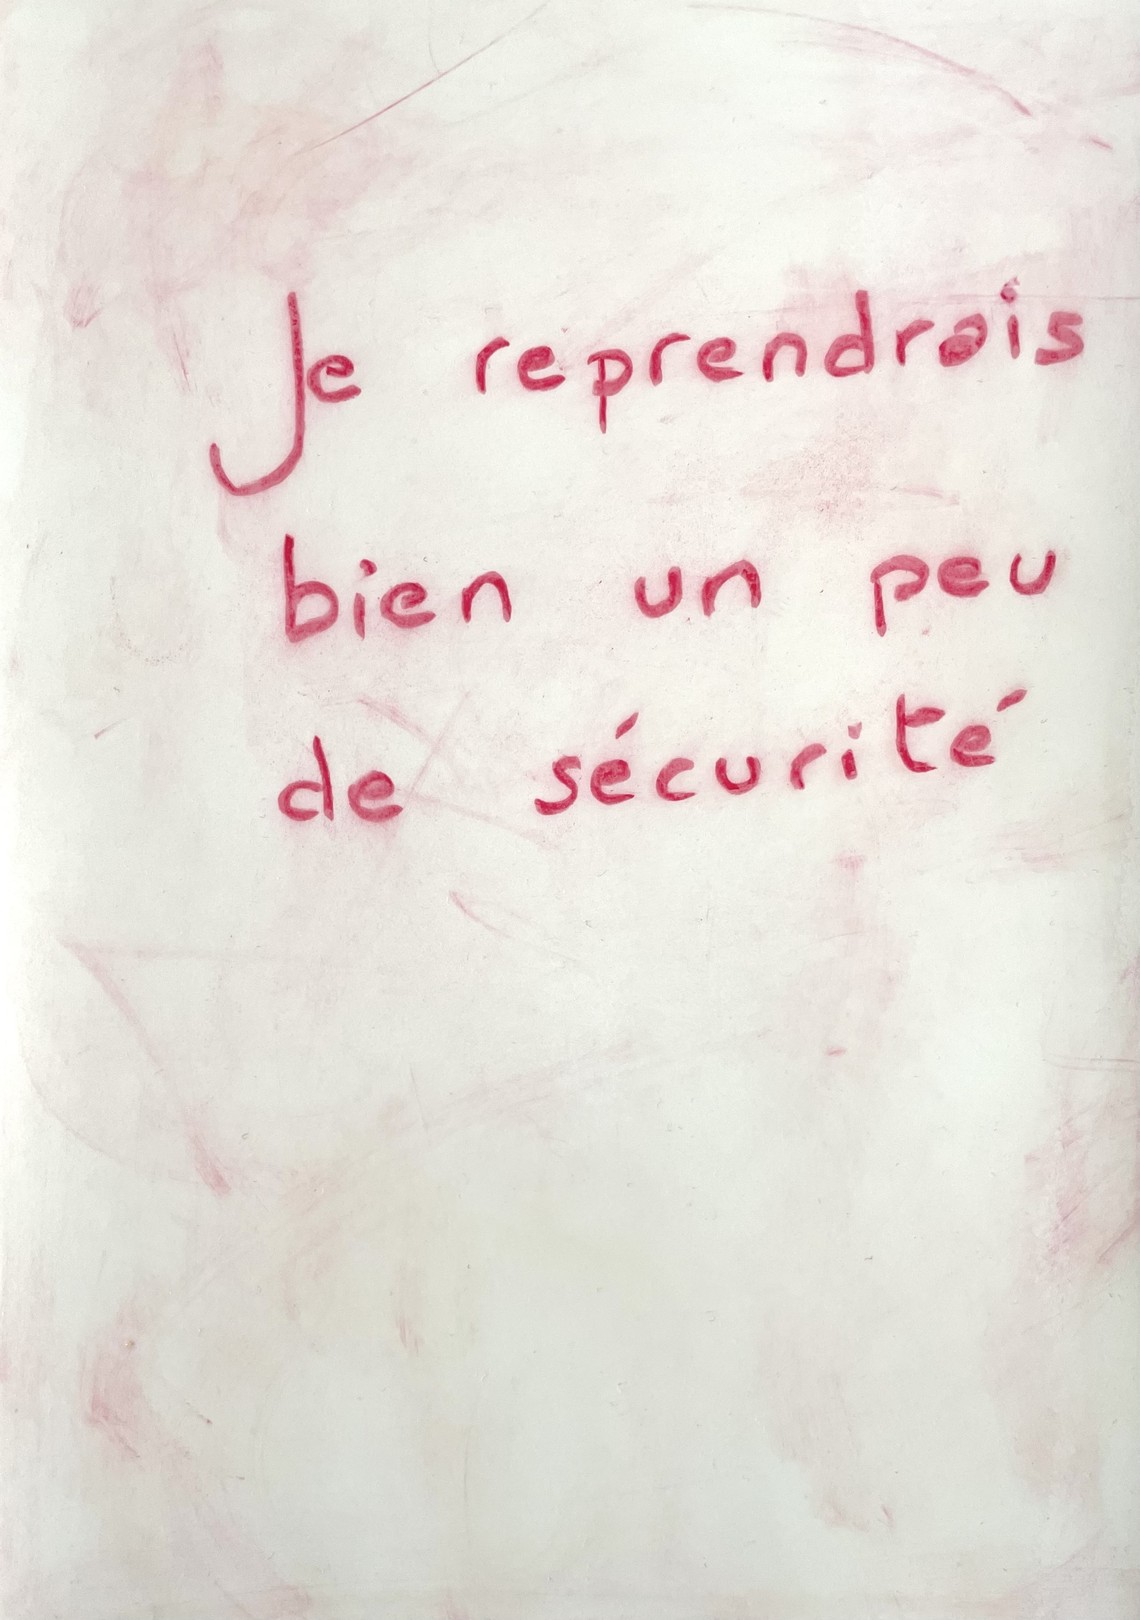 Je reprendrais
bien un peu
de sécurité